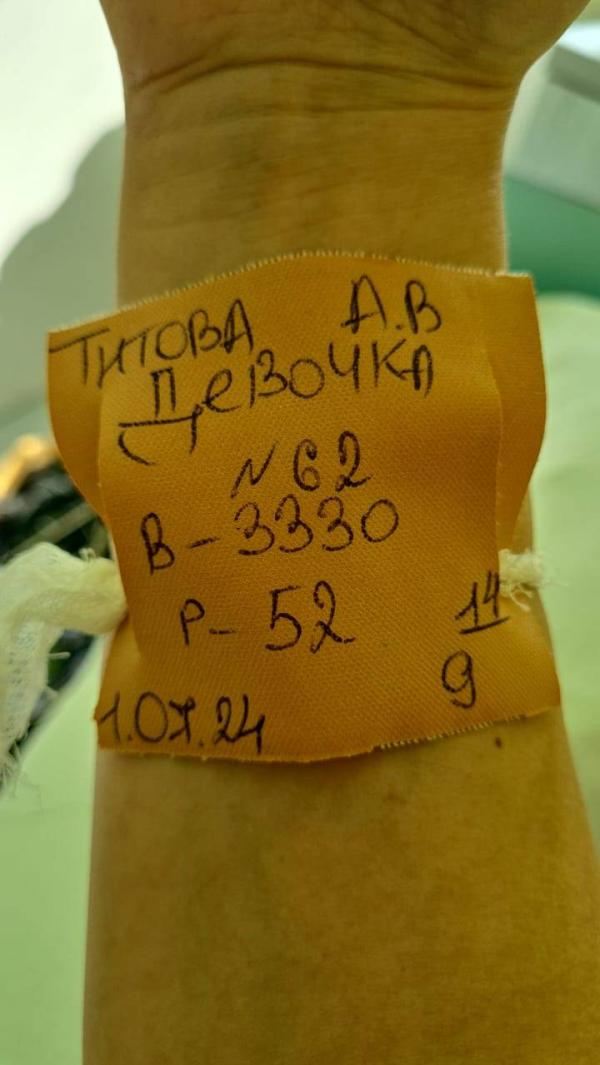 ТИТОВА А.В
ДЕВОЧКА
N 62
В - 3330
Р - 52
14/9
1.07.24